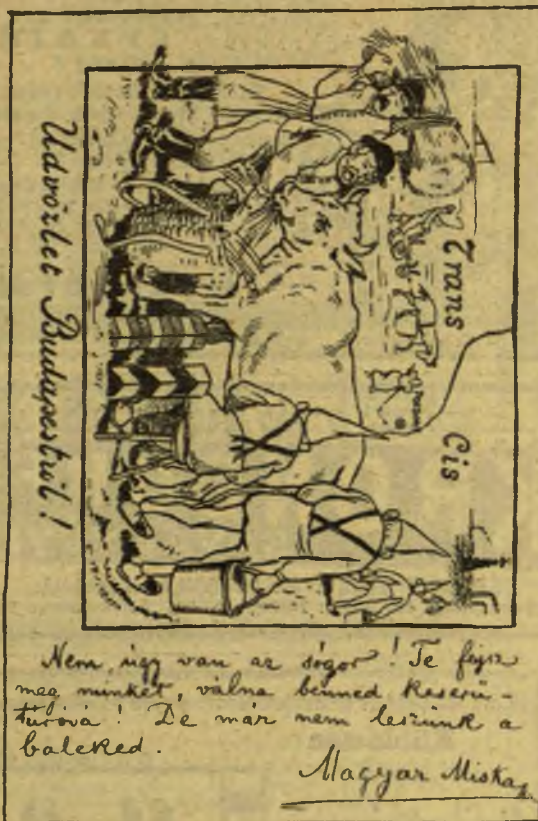 Trans
Cis
Üdvözlet Budapestről!
Nem úgy van az sógor! Te fejsz
meg minket, válna benned keserü-
túróvá! De már nem leszünk a
baleked.
Magyar Miska